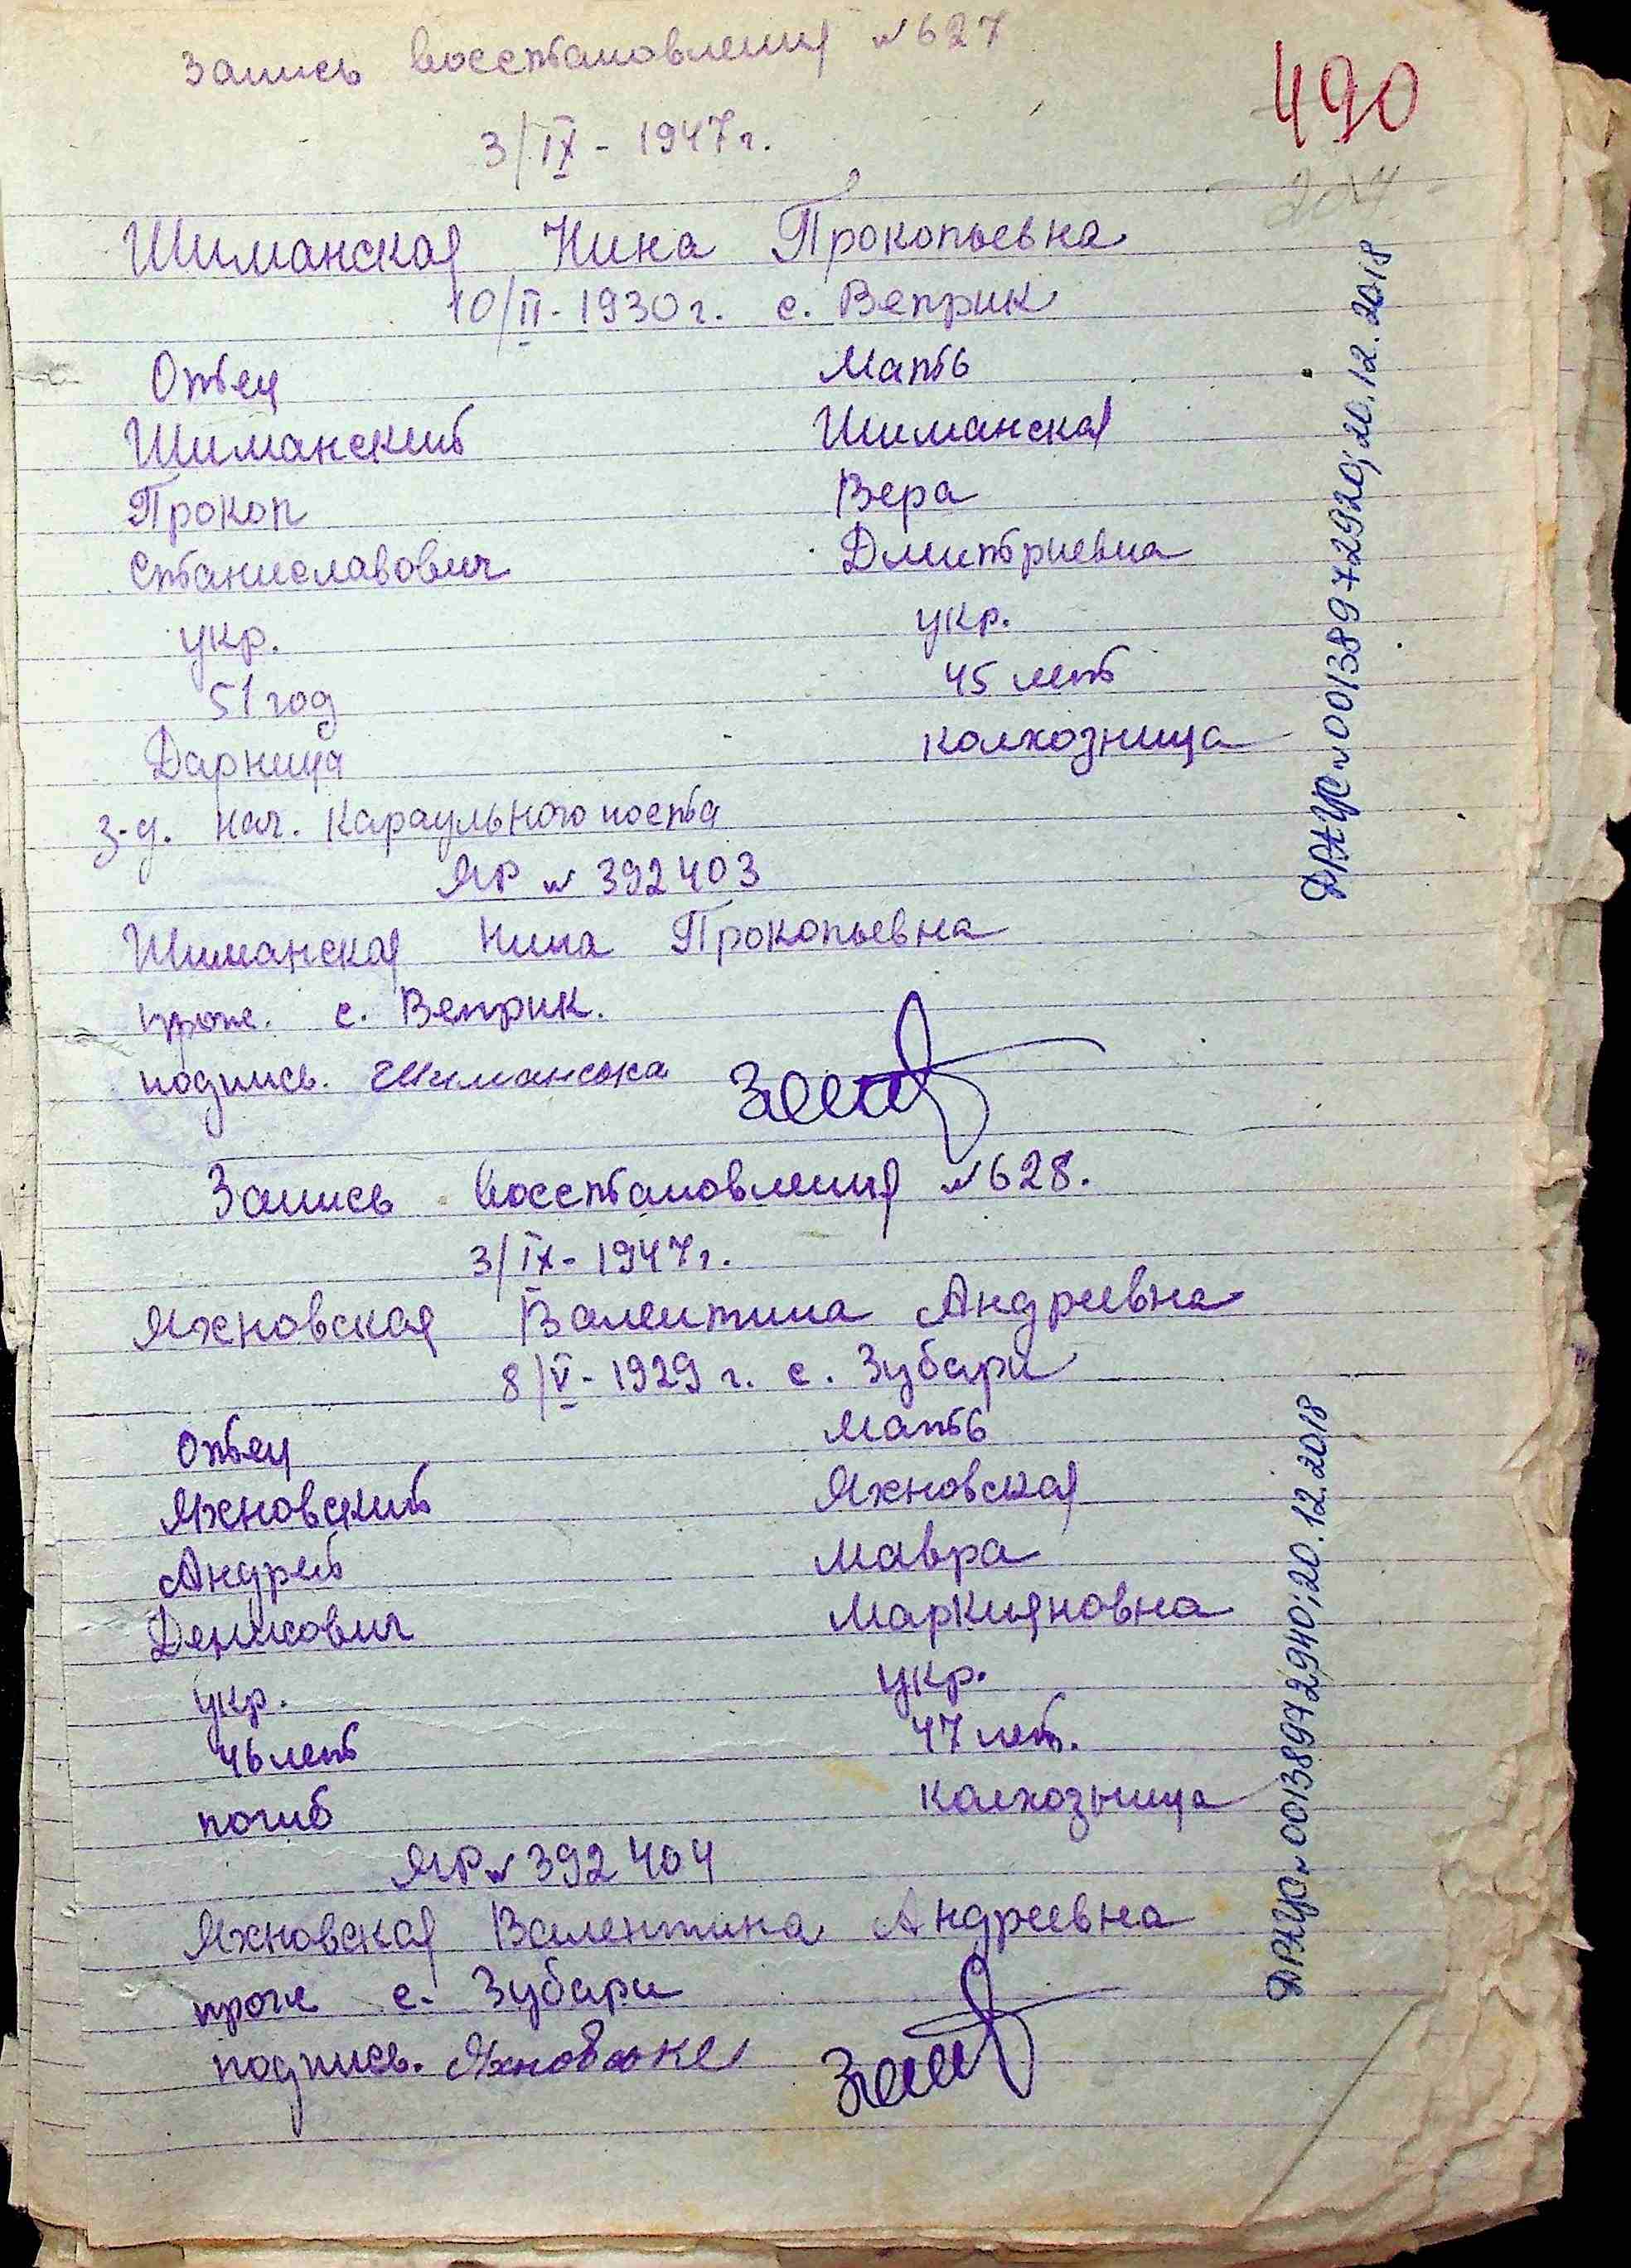 Запись восстановления №627
490
3/IX - 1947г.
Шиманская Нина Прокопьевна
10/II - 1930г. с. Веприк
Отец
Мать
Шиманский
Шиманская
Прокоп
Вера
Станиславович
Дмитриевна
укр.
укр.
51 год
45 лет
Дарница
колхозница
з-д. нач. караульного поста
ЯР № 392403
Шиманская Нина Прокопьевна
прож. с. Веприк.
подпись. Шиманська
ДРАЦС № 00138972920; 20.12.2018
Запись восстановления №628.
3/IX - 1947г.
Яхновская Валентина Андреевна
8/V - 1929 г. с. Зубари
Отец
Мать
Яхновский
Яхновская
Андрей
Мавра
Денисович
Маркияновна
укр.
укр.
46 лет
47 лет.
погиб
колхозница
ЯР № 392404
Яхновская Валентина Андреевна
прож с. Зубари
подпись.
ДРАЦС № 00138972940; 20.12.2018